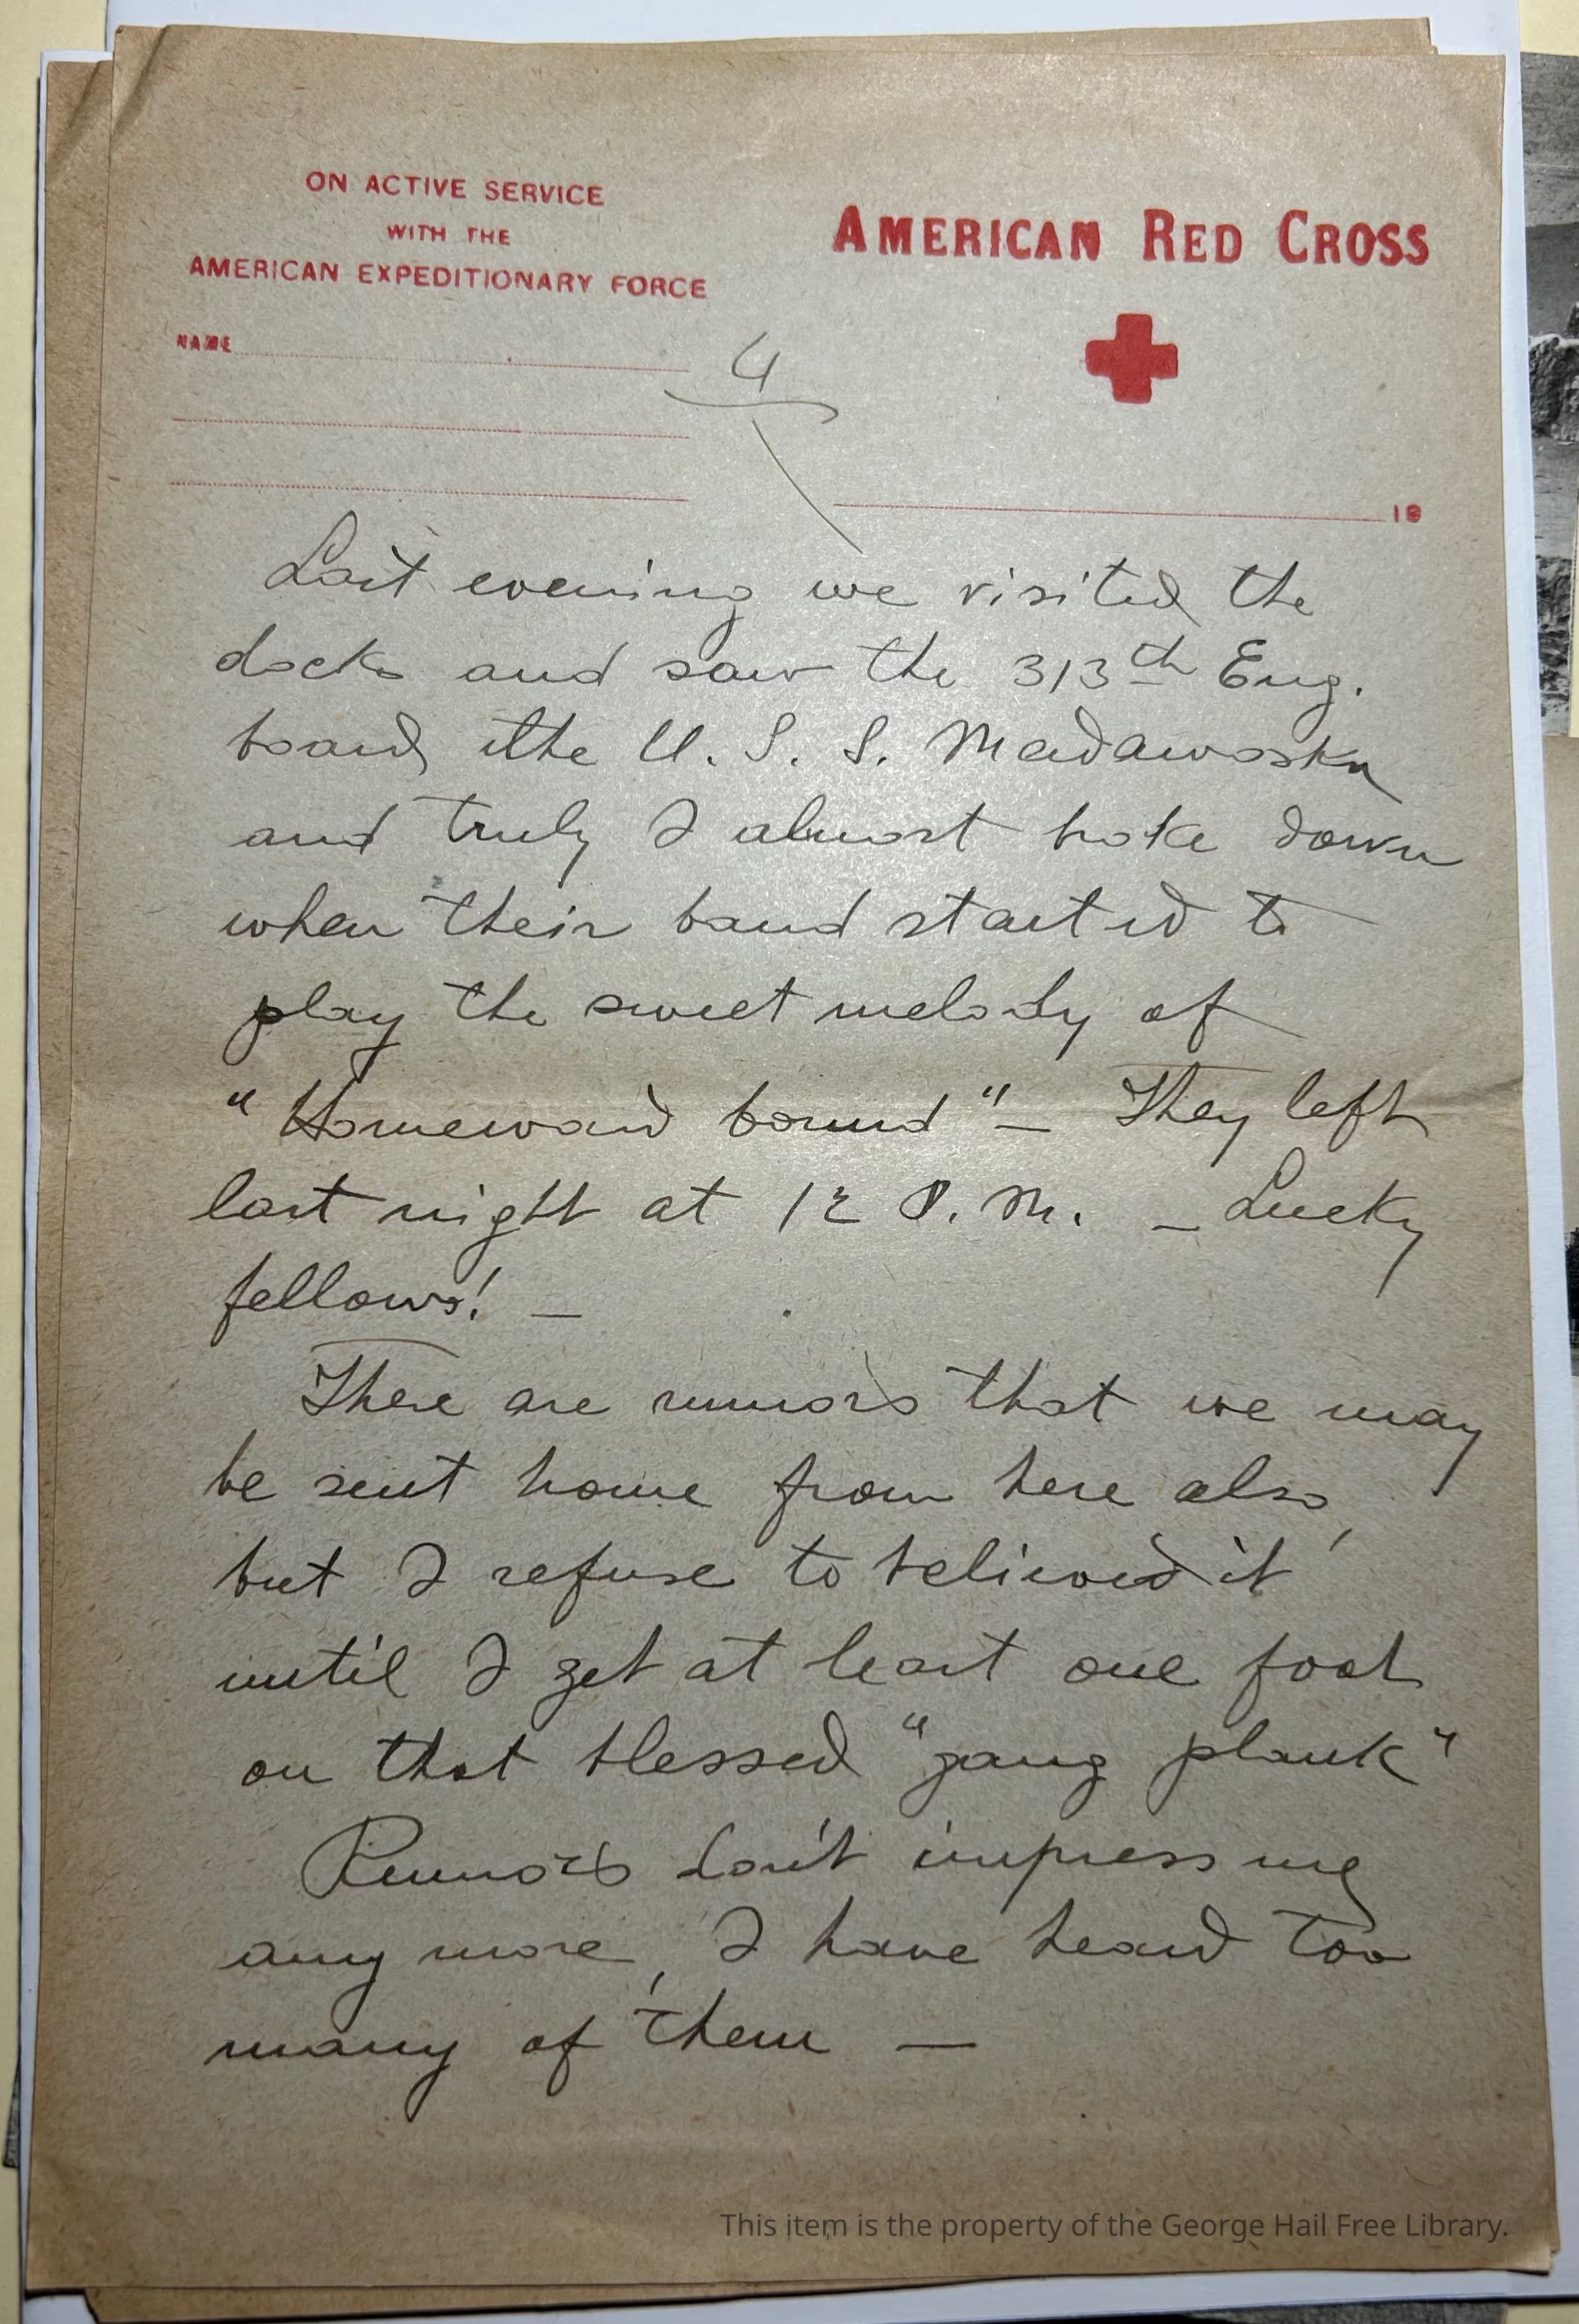 ON ACTIVE SERVICE
WITH THE
AMERICAN EXPEDITIONARY FORCE
AMERICAN RED CROSS
NAME
4
19
Last evening we visited the
docks and saw the 313th Eng.
board the U. S. S. Madawaska
and truly I almost broke down
when their band started to
play the sweet melody of
"Homeward bound" — They left
last night at 12 P. M. — Lucky
fellows! —
There are rumors that we may
be sent home from here also,
but I refuse to believed it
until I get at least one foot
on that blessed "gang plank"
Rumors don't impress me
any more, I have heard too
many of them —
This item is the property of the George Hail Free Library.